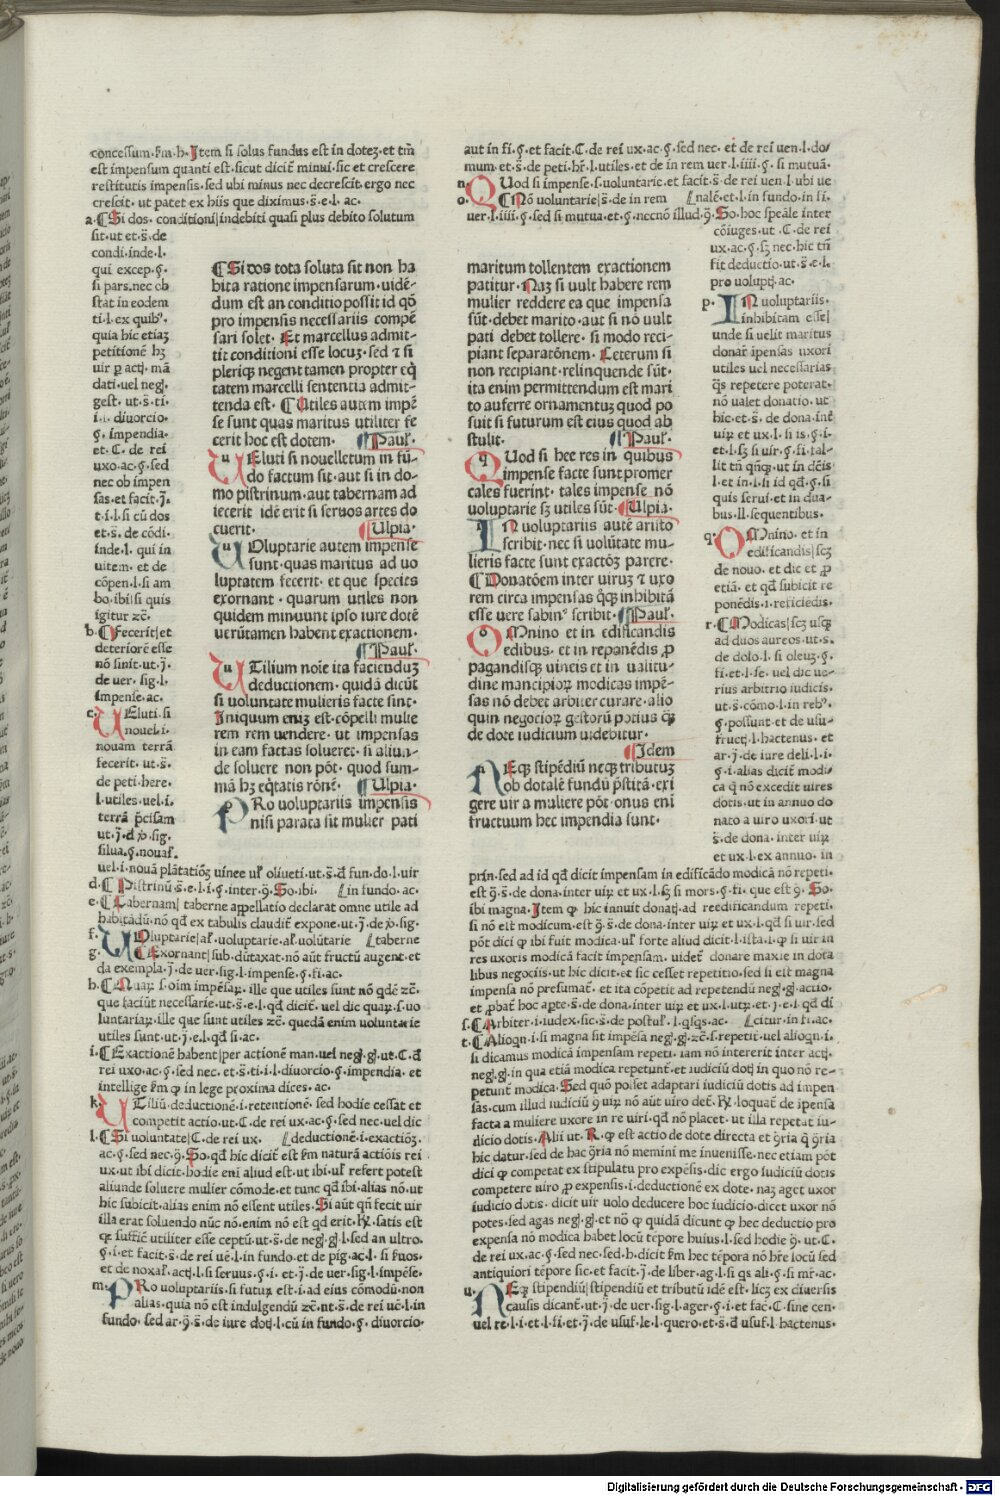 concessum.ẜm.h. Item si solus fundus est in dotez. et tm̄
est impensum quanti est. sicut dicit̄ minui. sic et crescere
restitutis impensis. sed ubi minus nec decrescit. ergo nec
crescit. ut patet ex hiis que diximus. s̄.e.l. ac.
a. ¶ Si dos. conditioni|indebiti quasi plus debito solutum
sit. ut et. s̄. de
condi. inde. l.
qui excep. ꝯ.
si pars. nec ob
stat in eodem
ti. l. ex quibꝰ.
quia hic etiaz
petitionē hz
uir ꝑ actj. mā
dati. uel negj.
gest. ut. s̄. ti.
i. i. diuorcio.
ꝯ. impendia.
et. C. de rei
uxo. ac. ꝯ. sed
nec ob impen
sas. et facit. j̄.
t. i. l. si cū dos
et. s̄. de cōdi.
inde. l. qui in
uitem. et de
cōpen. l. si am
bo. ibi|si quis
igitur zc̄.
b. ¶ Fecerit|et
deteriorē esse
nō sinit. ut. j̄.
de uer. sig. l.
impense. ac.
c. UEluti. si
nouel. i.
nouam terrā
fecerit. ut. s̄.
de peti. here.
l. utiles. uel. i.
terrā p̄cisam
ut. j̄. d̄ ꝟ. sig.
silua. ꝯ. nouaƚ.
uel. i. nouā plātatiōz uinee uƚ oliueti. ut. s̄. d̄ fun. do. l. uir
d. ¶ Pistrinū. s̄. e. l. i. ꝯ. inter. ꝯ̄. So. ibi. in fundo. ac.
e. ¶ Tabernam| taberne appellatio declarat omne utile ad
habitādū. nō qd̄ ex tabulis claudit̄ expone. ut. j̄. de ꝟ. sig.
f. UOluptarie|aƚ. uoluptarie. aƚ. uolūtarie taberne
g. ¶ Exornant|sub. dūtaxat. nō aūt fructū augent. et
da exempla. j̄. de uer. sig. l. impense. ꝯ. fi. ac.
h. ¶ Quaꝝ. s. oim impēsaꝝ. ille que utiles sunt nō qdē zc̄.
que faciūt necessarie. ut. s̄. e. l. qd̄ dicit̄. uel dic quaꝝ. s. uo
luntariaꝝ. ille que sunt utiles zc̄. quedā enim voluntarie
utiles sunt. ut. j̄. e. l. qd̄ si. ac.
i. ¶ Exactionē habent|per actionē man. uel negj. gj. ut. C. d̄
rei uxo. ac. ꝯ. sed nec. et. s̄. ti. i. l. diuorcio. ꝯ. impendia. et
intellige ẜm ꝙ in lege proxima dices. ac.
k. UTiliū. deductionē. i. retentionē. sed hodie cessat et
competit actio. ut. C. de rei ux. ac. ꝯ. sed nec. uel dic
l. ¶ Si voluntate| C. de rei ux. deductionē. i. exactiōz.
ac. ꝯ. sed nec. ꝯ̄. So. qd̄ hic dicit̄ est ẜm naturā actiōis rei
ux. ut ibi dicit. hodie eni aliud est. ut ibi. uƚ refert potest
aliunde soluere mulier cōmode. et tunc qd̄ ibi. alias nō. ut
hic subicit. alias enim nō essent utiles. Si aūt qn̄ fecit uir
illa erat soluendo nūc nō. enim nō est qd̄ erit. R̄. satis est
ꝙ suffic̄ utiliter esse ceptū. ut. s̄. de negj. gj. l. sed an ultro.
ꝯ. i. et facit. s̄. de rei uē. l. in fundo. et de pig. ac. l. si ẜuos.
et de noxaƚ. actj. l. si seruus. ꝯ. i. et. j̄. de uer. sig. l. impēse.
m. PRo uoluptariis. si futuꝝ est. i. ad eius cōmodū. non
alias. quia nō est indulgendū zc̄. nt. s̄. de rei uē. l. in
fundo. sed ar. ꝯ̄. s̄. de iure dotj. l. cū in fundo. ꝯ. diuorcio.
¶ Si dos tota soluta sit non ha
bita ratione impensarum. uidē-
dum est an conditio possit id qō
pro impensis necessariis compē
sari solet. Et marcellus admit-
tit conditioni esse locuz. sed ⁊ si
pleriqꝫ negent tamen propter eq̄
tatem marcelli sententia admit-
tenda est. ¶ Utiles autem impē
se sunt quas maritus utiliter fe
cerit hoc est dotem. ¶ Pauƚ.
UEluti si nouelletum in fū-
do factum sit. aut si in do-
mo pistrinum. aut tabernam ad
iecerit idē erit si seruos artes do
cuerit. ¶ Ulpia.
UOluptarie autem impense
sunt. quas maritus ad uo
luptatem fecerit. et que species
exornant. quarum utiles non
quidem minuunt ipso iure dotē
uerūtamen habent exactionem.
¶ Pauƚ.
UTilium noīe ita faciendūz
deductionem. quidā dicūt
si voluntate mulieris facte sint.
Iniquum enīz est. cōpelli mulie
rem rem uendere. ut impensas
in eam factas solueret. si aliun-
de soluere non pōt. quod sum-
mā hz eq̄tatis rōnē. ¶ Ulpia.
PRo uoluptariis impensis
nisi parata sit mulier pati
maritum tollentem exactionem
patitur. Naz si uult habere rem
mulier reddere ea que impensa
sūt. debet marito. aut si nō uult
pati debet tollere. si modo reci-
piant separatōnem. Ceterum si
non recipiant. relinquende sūt.
ita enim permittendum est mari
to auferre ornamentuz quod po
suit si futurum est eius quod ab
stulit. ¶ Pauƚ.
QUod si hee res in quibus
impense facte sunt promer
cales fuerint. tales impense nō
uoluptarie sz utiles sūt. ¶ Ulpia.
IN uoluptariis autē aristo
scribit. nec si uolūtate mu-
lieris facte sunt exactōz parere.
¶ Donatōem inter viruz ⁊ uxo
rem circa impensas q̄qꝫ inhibitā
esse uere sabinꝰ scribit. ¶ Pauƚ.
OMnino et in edificandis
edibus. et in reponēdis ꝓ
pagandisqꝫ uineis et in ualitu-
dine mancipioꝝ modicas impē-
sas nō debet arbiter curare. alio
quin negocioꝝ gestorū potius q̄ꝫ
de dote iudicium uidebitur.
¶ Idem
NEqꝫ stipēdiū neqꝫ tributuz
ob dotalē fundū p̄stitā. exi
gere uir a muliere pōt. onus eni
fructuum hec impendia sunt.
aut in fi. ꝯ. et facit. C. de rei ux. ac. ꝯ. sed nec. et de rei uen. l. do/
mum. et. s̄. de peti. hr̄. l. utiles. et de in rem uer. l. iiii. ꝯ. si mutuā.
n. QUod si impense. s. voluntarie. et facit. s̄. de rei uen. l. ubi ve
o. ¶ Nō voluntarie|s̄. de in rem nalē. et. l. in fundo. in fi.
uer. l. iiii. ꝯ. sed si mutua. et. ꝯ. necnō illud. ꝯ̄. So. hoc spēale inter
cōiuges. ut. C. de rei
ux. ac. ꝯ. sz nec. hic tn̄
fit deductio. ut. s̄. e. l.
pro uoluptj. ac.
p. IN uoluptariis.
inhibitam esse|
unde si uelit maritus
donar̄ īpensas uxori
utiles uel necessarias
q̄s repetere poterat.
nō ualet donatio. ut
hic. et. s̄. de dona. int̄
uiꝝ et ux. l. si is. ꝯ. i.
et. l. sz si uir. ꝯ. fi. tal-
lit tn̄ qn̄qꝫ. ut in dēis
l. et in. l. si id qd̄. ꝯ. si
quis serui. et in dua-
bus. ll. sequentibus.
q. OMnino. et in
edificandis|scz
de nouo. et dic et ꝓ
etiā. et qd̄ subicit re
ponēdis. i. reficiēdis.
r. ¶ Modicas|scz usqꝫ
ad duos aureos. ut. s̄.
de dolo. l. si oleuz. ꝯ.
fi. et. l. se. uel dic ue-
rius arbitrio iudicis.
ut. s̄. cōmo. l. in rebꝰ.
ꝯ. possunt. et de usu-
fructj. l. hactenus. et
ar. j̄. de iure deli. l. i.
ꝯ. i. alias dicit̄ modi-
ca q̄ nō excedit uires
dotis. ut in annuo do
nato a uiro uxori. ut
s̄. de dona. inter uiꝝ
et ux. l. ex annuo. in
prīn. sed ad id qd̄ dicit impensam in edificādo modicā nō repeti.
est ꝯ̄. s̄. de dona. inter uiꝝ et ux. l. sz si mors. ꝯ. fi. que est ꝯ̄. So.
ibi magna. Item ꝙ hic innuit donatj. ad reedificandum repeti.
si nō est modicum. est ꝯ̄. s̄. de dona. inter uiꝝ et ux. l. qd̄ si uir. sed
pōt dici ꝙ ibi fuit modica. uƚ forte aliud dicit. l. ista. l. ꝙ si uir in
res uxoris modicā facit impensam. uidet̄ donare maxie in dota
libus negociis. ut hic dicit. et sic cesset repetitio. sed si est magna
impensa nō presumat̄. et ita cōpetit ad repetendū negj. gj. actio.
et ꝓbat̄ hoc apte. s̄. de dona. inter uiꝝ et ux. l. utꝝ. et. j̄. e. l. qd̄ di
s. ¶ Arbiter. i. iudex. sic. s̄. de postuƚ. l. qsqs. ac. citur. in fi. ac.
t. ¶ Alioqn. i. si magna sit impēsa negj. gj. zc̄. s. repetit̄. uel alioqn. i.
si dicamus modicā impensam repeti. iam nō intererit inter actj.
negj. gj. in qua etiā modica repetunt̄. et iudiciū dotj in quo nō re-
petunt̄ modica. Sed quō posset adaptari iudiciū dotis ad impen
sas. cum illud iudiciū ꝯ̄ uiꝝ nō aūt uiro det̄. R̄. loquat̄ de īpensa
facta a muliere uxore in re uiri. qd̄ nō placet. ut illa repetat iu-
dicio dotis. Alii ut. R. ꝙ est actio de dote directa et ꝯ̄ria q̄ ꝯ̄ria
hic datur. sed de hac ꝯ̄ria nō memini me inuenisse. nec etiam pōt
dici ꝙ competat ex stipulatu pro expēsis. dic ergo iudiciū dotis
competere uiro ꝓ expensis. i. deductionē ex dote. naz aget uxor
iudicio dotis. dicit uir uolo deducere hoc iudicio. dicet uxor nō
potes. sed agas negj. gj. et nō ꝙ quidā dicunt ꝙ hec deductio pro
expensa nō modica habet locū tēpore huius. l. sed hodie ꝯ̄. ut. C.
de rei ux. ac. ꝯ. sed nec. sed. h. dicit ẜm hec tēpora nō hr̄e locū sed
antiquiori tēpore sic. et facit. j̄. de liber. ag. l. si qs ali. ꝯ. si mr̄. ac.
u. NEqꝫ stipendiū|stipendiū et tributū idē est. licz ex diversis
causis dicant̄. ut. j̄. de uer. sig. l. ager. ꝯ. i. et fac. C. sine cen.
uel re. l. i. et. l. fi. et. j̄. de usuf. le. l. quero. et. s̄. d̄ usuf. l. hactenus.
Digitalisierung gefördert durch die Deutsche Forschungsgemeinschaft - DFG